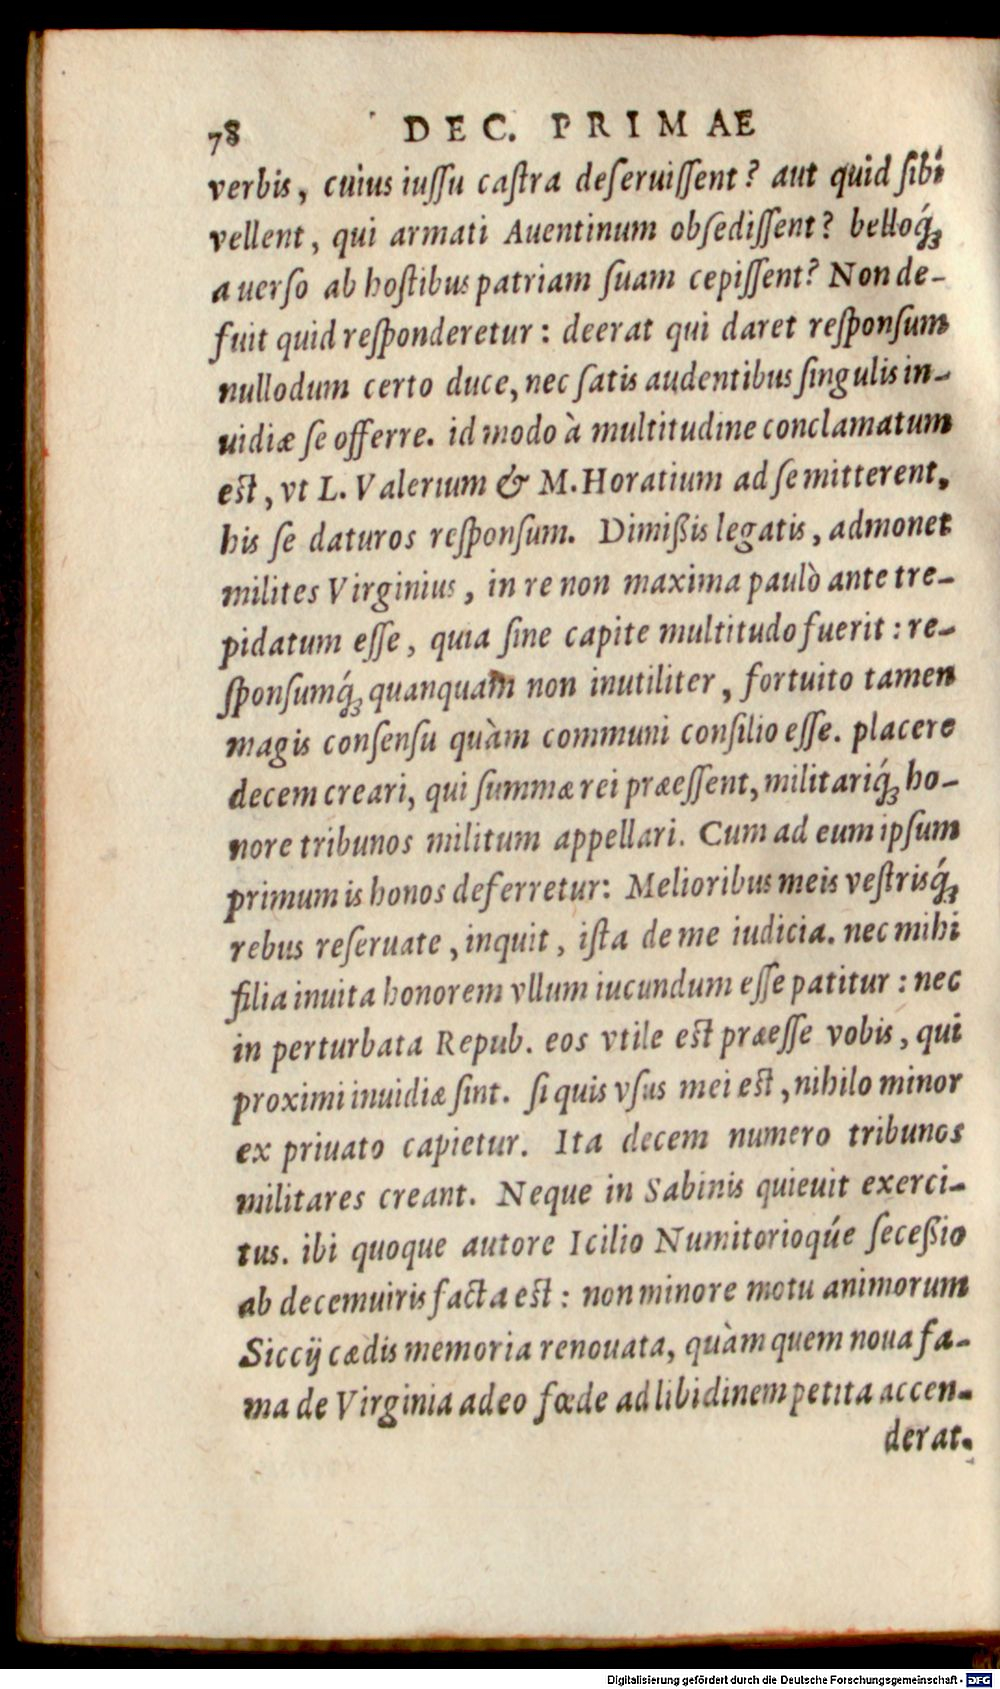 78 DEC. PRIMAE
verbis, cuius iuſſu caſtra deſeruiſſent? aut quid ſibi
vellent, qui armati Auentinum obſediſſent? belloq́ꝫ
auerſo ab hoſtibus patriam ſuam cepiſſent? Non de-
fuit quid reſponderetur: deerat qui daret reſponſum
nullodum certo duce, nec ſatis audentibus ſingulis in-
uidiæ ſe offerre. id modo à multitudine conclamatum
eſt, vt L. Valerium & M. Horatium ad ſe mitterent,
his ſe daturos reſponſum. Dimißis legatis, admonet
milites Virginius, in re non maxima paulò ante tre-
pidatum eſſe, quia ſine capite multitudo fuerit: re-
ſponſumq́ꝫ quanquam non inutiliter, fortuito tamen
magis conſenſu quàm communi conſilio eſſe. placere
decem creari, qui ſummæ rei præeſſent, militariq́ꝫ ho-
nore tribunos militum appellari. Cum ad eum ipſum
primum is honos deferretur: Melioribus meis veſtrisq́ꝫ
rebus reſeruate, inquit, iſta de me iudicia. nec mihi
filia inuita honorem vllum iucundum eſſe patitur: nec
in perturbata Repub. eos vtile eſt præeſſe vobis, qui
proximi inuidiæ ſint. ſi quis vſus mei eſt, nihilo minor
ex priuato capietur. Ita decem numero tribunos
militares creant. Neque in Sabinis quieuit exerci-
tus. ibi quoque autore Icilio Numitorioqúe ſeceßio
ab decemuiris facta eſt: non minore motu animorum
Siccij cædis memoria renouata, quàm quem noua fa-
ma de Virginia adeo fœde ad libidinem petita accen-
derat.
Digitalisierung gefördert durch die Deutsche Forschungsgemeinschaft - DFG